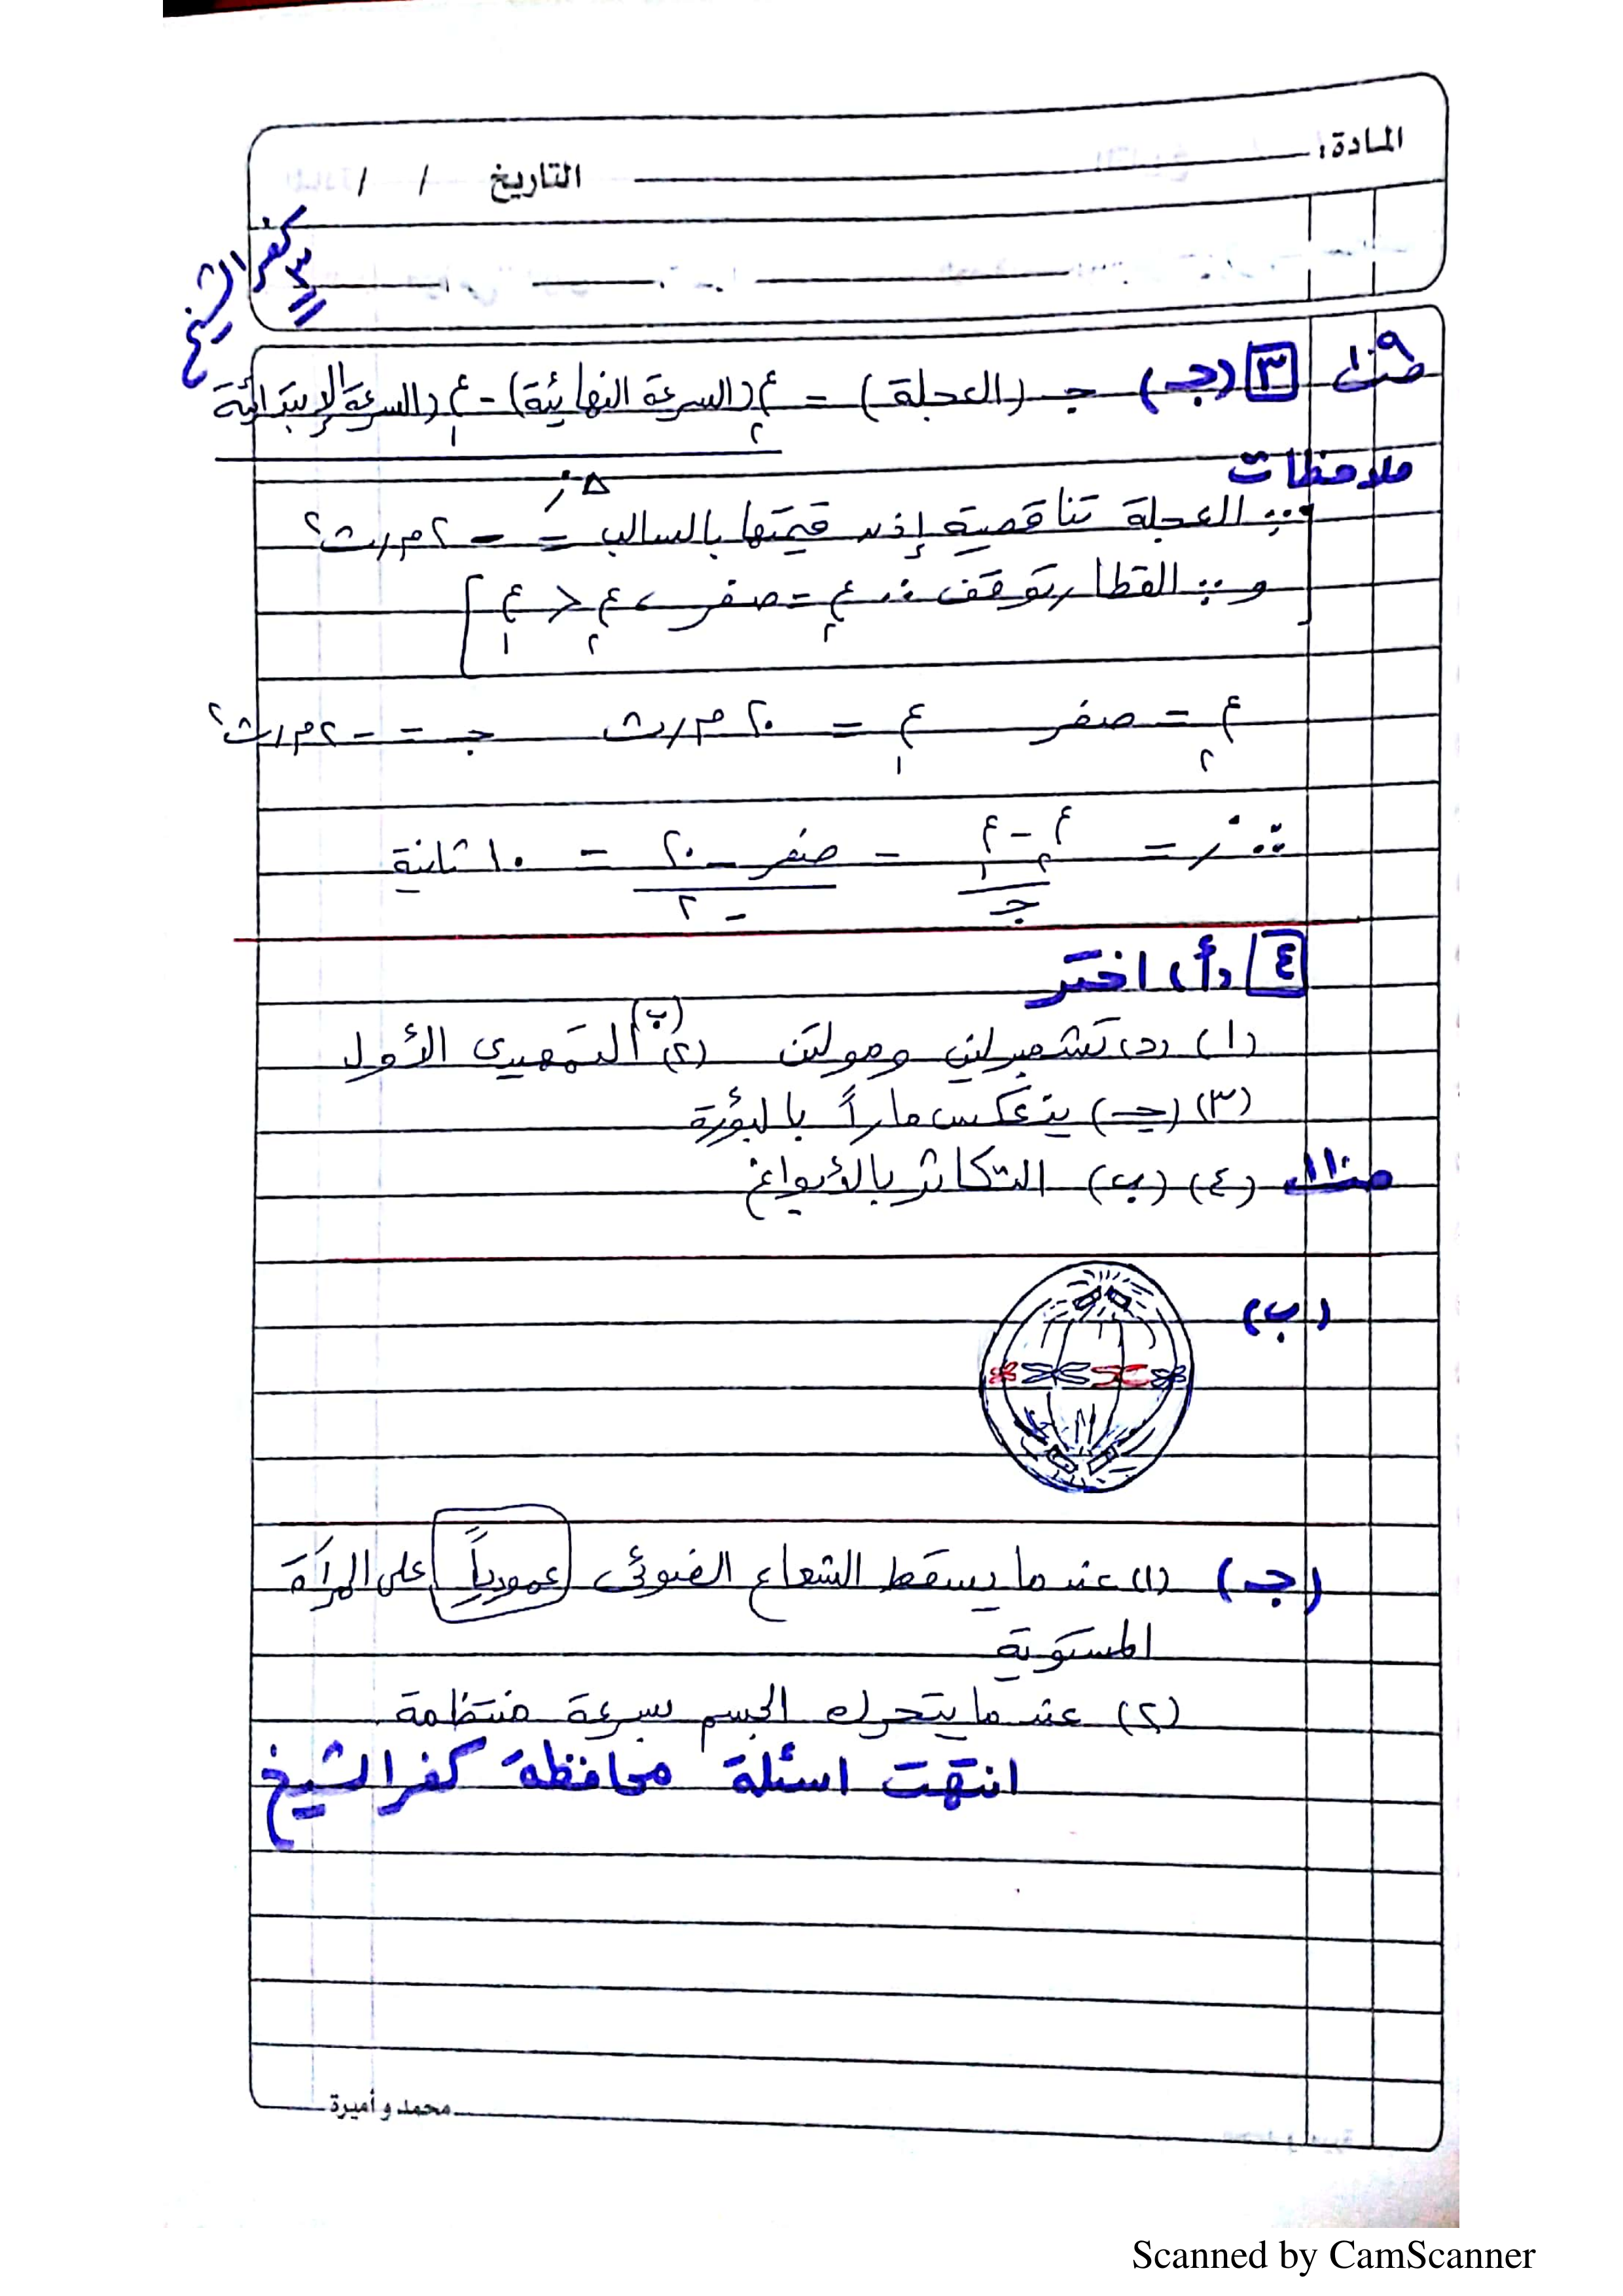 المادة: التاريخ / /
كفر الشيخ
٣
صـ ١٠٩ ٣ (جـ) جـ (العجلة) = ع٢ (السرعة النهائية) - ع١ (السرعة الإبتدائية
Δ ز
ملاحظات
∵ العجلة تناقصية إذن قيمتها بالسالب = - ٢ م/ث٢
و ∵ القطار توقف ∴ ع٢ = صفر ، ع٢ < ع١
ع٢ = صفر ع١ = ٢٠ م/ث جـ = - ٢ م/ث٢
∴ ز = ع٢ - ع١ / جـ = صفر - ٢٠ / - ٢ = ١٠ ثانية
٤ (أ) اختر
(١) (د) تشمبرلن ومولتن (٢) (ب) التمهيدى الأول
(٣) (جـ) ينعكس ماراً بالبؤرة
صـ ١١٠ (٤) (ب) التكاثر بالأبواغ
(ب)
(جـ) (١) عندما يسقط الشعاع الضوئى عمودياً على المرآة
المستوية
(٢) عندما يتحرك الجسم بسرعة منتظمة
انتهت اسئلة محافظة كفر الشيخ
محمد و أميرة
Scanned by CamScanner